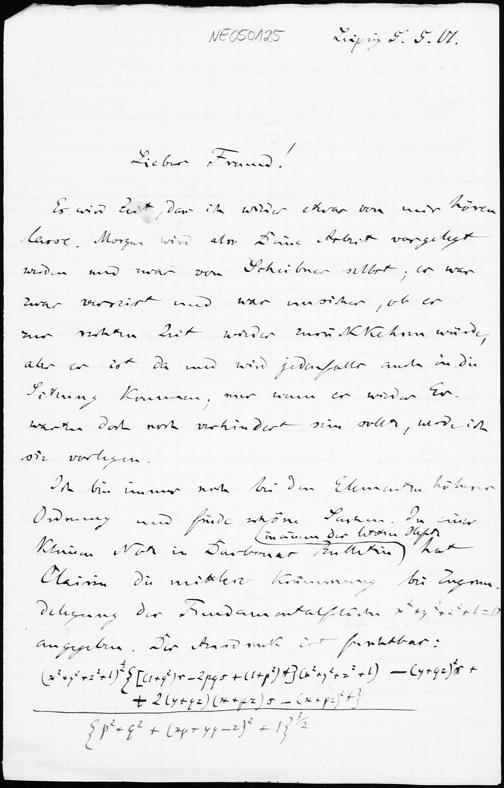 NE050125
Leipzig 5. 5. 01.
Lieber Freund!
Es wird Zeit, dass ich wieder etwas von mir hören
lasse. Morgen wird also Deine Arbeit vorgelegt
werden und zwar von Scheibner selbst; er war
zwar verreist und war unsicher, ob er
zur rechten Zeit wieder zurückkehren würde,
aber er ist da und wird jedenfalls auch in die
Sitzung kommen; nur wenn er wieder Er-
warten doch noch verhindert sein sollte, werde ich
sie vorlegen.
Ich bin immer noch bei den Elementen höherer
Ordnung und finde schöne Sachen. In einer
(in einem der letzten Hefte)
kleinen Note in Darboux Bulletin hat
die mittlere Krümmung bei Zugrun-
delegung der Fundamentalfläche x²+y²+z²+1=0
angegeben. Der Ausdruck ist furchtbar:
(x²+y²+z²+1)^½ {[(1+q²)r − 2pqs + (1+p²)t](x²+y²+z²+1) − (y+qz)²r +
+ 2(y+qz)(x+pz)s − (x+pz)²t}
{p²+q² + (xp+yq−z)² + 1}^3/2